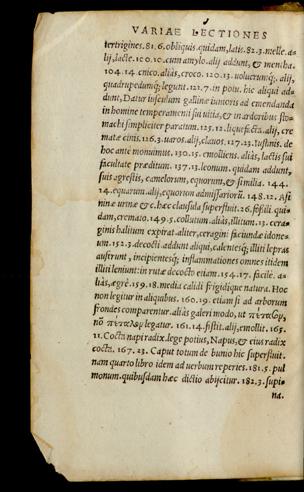 VARIAE LECTIONES
tertrigines. 81.6. obliquis. quidam, latis. 82.3. melle. a-
lij, lacte. 100.10. cum amylo. alij addunt, & mentha.
104.14. cnico. aliàs, croco. 120.13. uolucrumq́;. alij,
quadrupedumq́; legunt. 122.7. in potu. hic aliqui ad-
dunt, Datur iusculum gallinæ iunioris ad emendanda
in homine temperamenti sui uitia, & in ardoribus sto-
machi simpliciter paratum. 125.12. liquefacta. alij, cre
matæ cinis. 126.3. uaros. alij, clauos. 127.23. Tustanis. de
hoc antè monuimus. 130.15. emolliens. aliàs, lactis sui
facultate præditum. 137.13. leonum. quidam addunt,
suis agrestis, camelorum, equorum, & similia. 144.
14. equarum. alij, equorum admissariorũ. 148.12. Asi
ninæ urinæ & c. hæc clausula superfluit. 26. fossili. qui-
dam, cremato. 149.5. collutum. aliàs, illitum. 13. cera-
ginis halitum expirat. aliter, ceragini facundæ idone-
um. 152.3. decocti addunt aliqui, calentesq́; illiti lepras
auferunt, incipientesq́; inflammationes omnes itidem
illiti leniunt: in rutæ decocto etiam. 154.17. facile. a-
liàs, ægrè. 159.18. media calidi frigidiq́; natura. Hoc
non legitur in aliquibus. 160.19. etiam si ad arborum
frondes comparentur. aliàs galeri modo, ut πέτασῳ,
nõ πέταλῳ legatur. 161.14. sistit. alij, emollit. 165.
11. Cocta napi radix. lege potius, Napus, & eius radix
cocta. 167.23. Caput totum de bunio hic superfluit.
nam quarto libro idem ad uerbum reperies. 181.5. pul
monum. quibusdam hæc dictio abijcitur. 182.3. supi-
na.